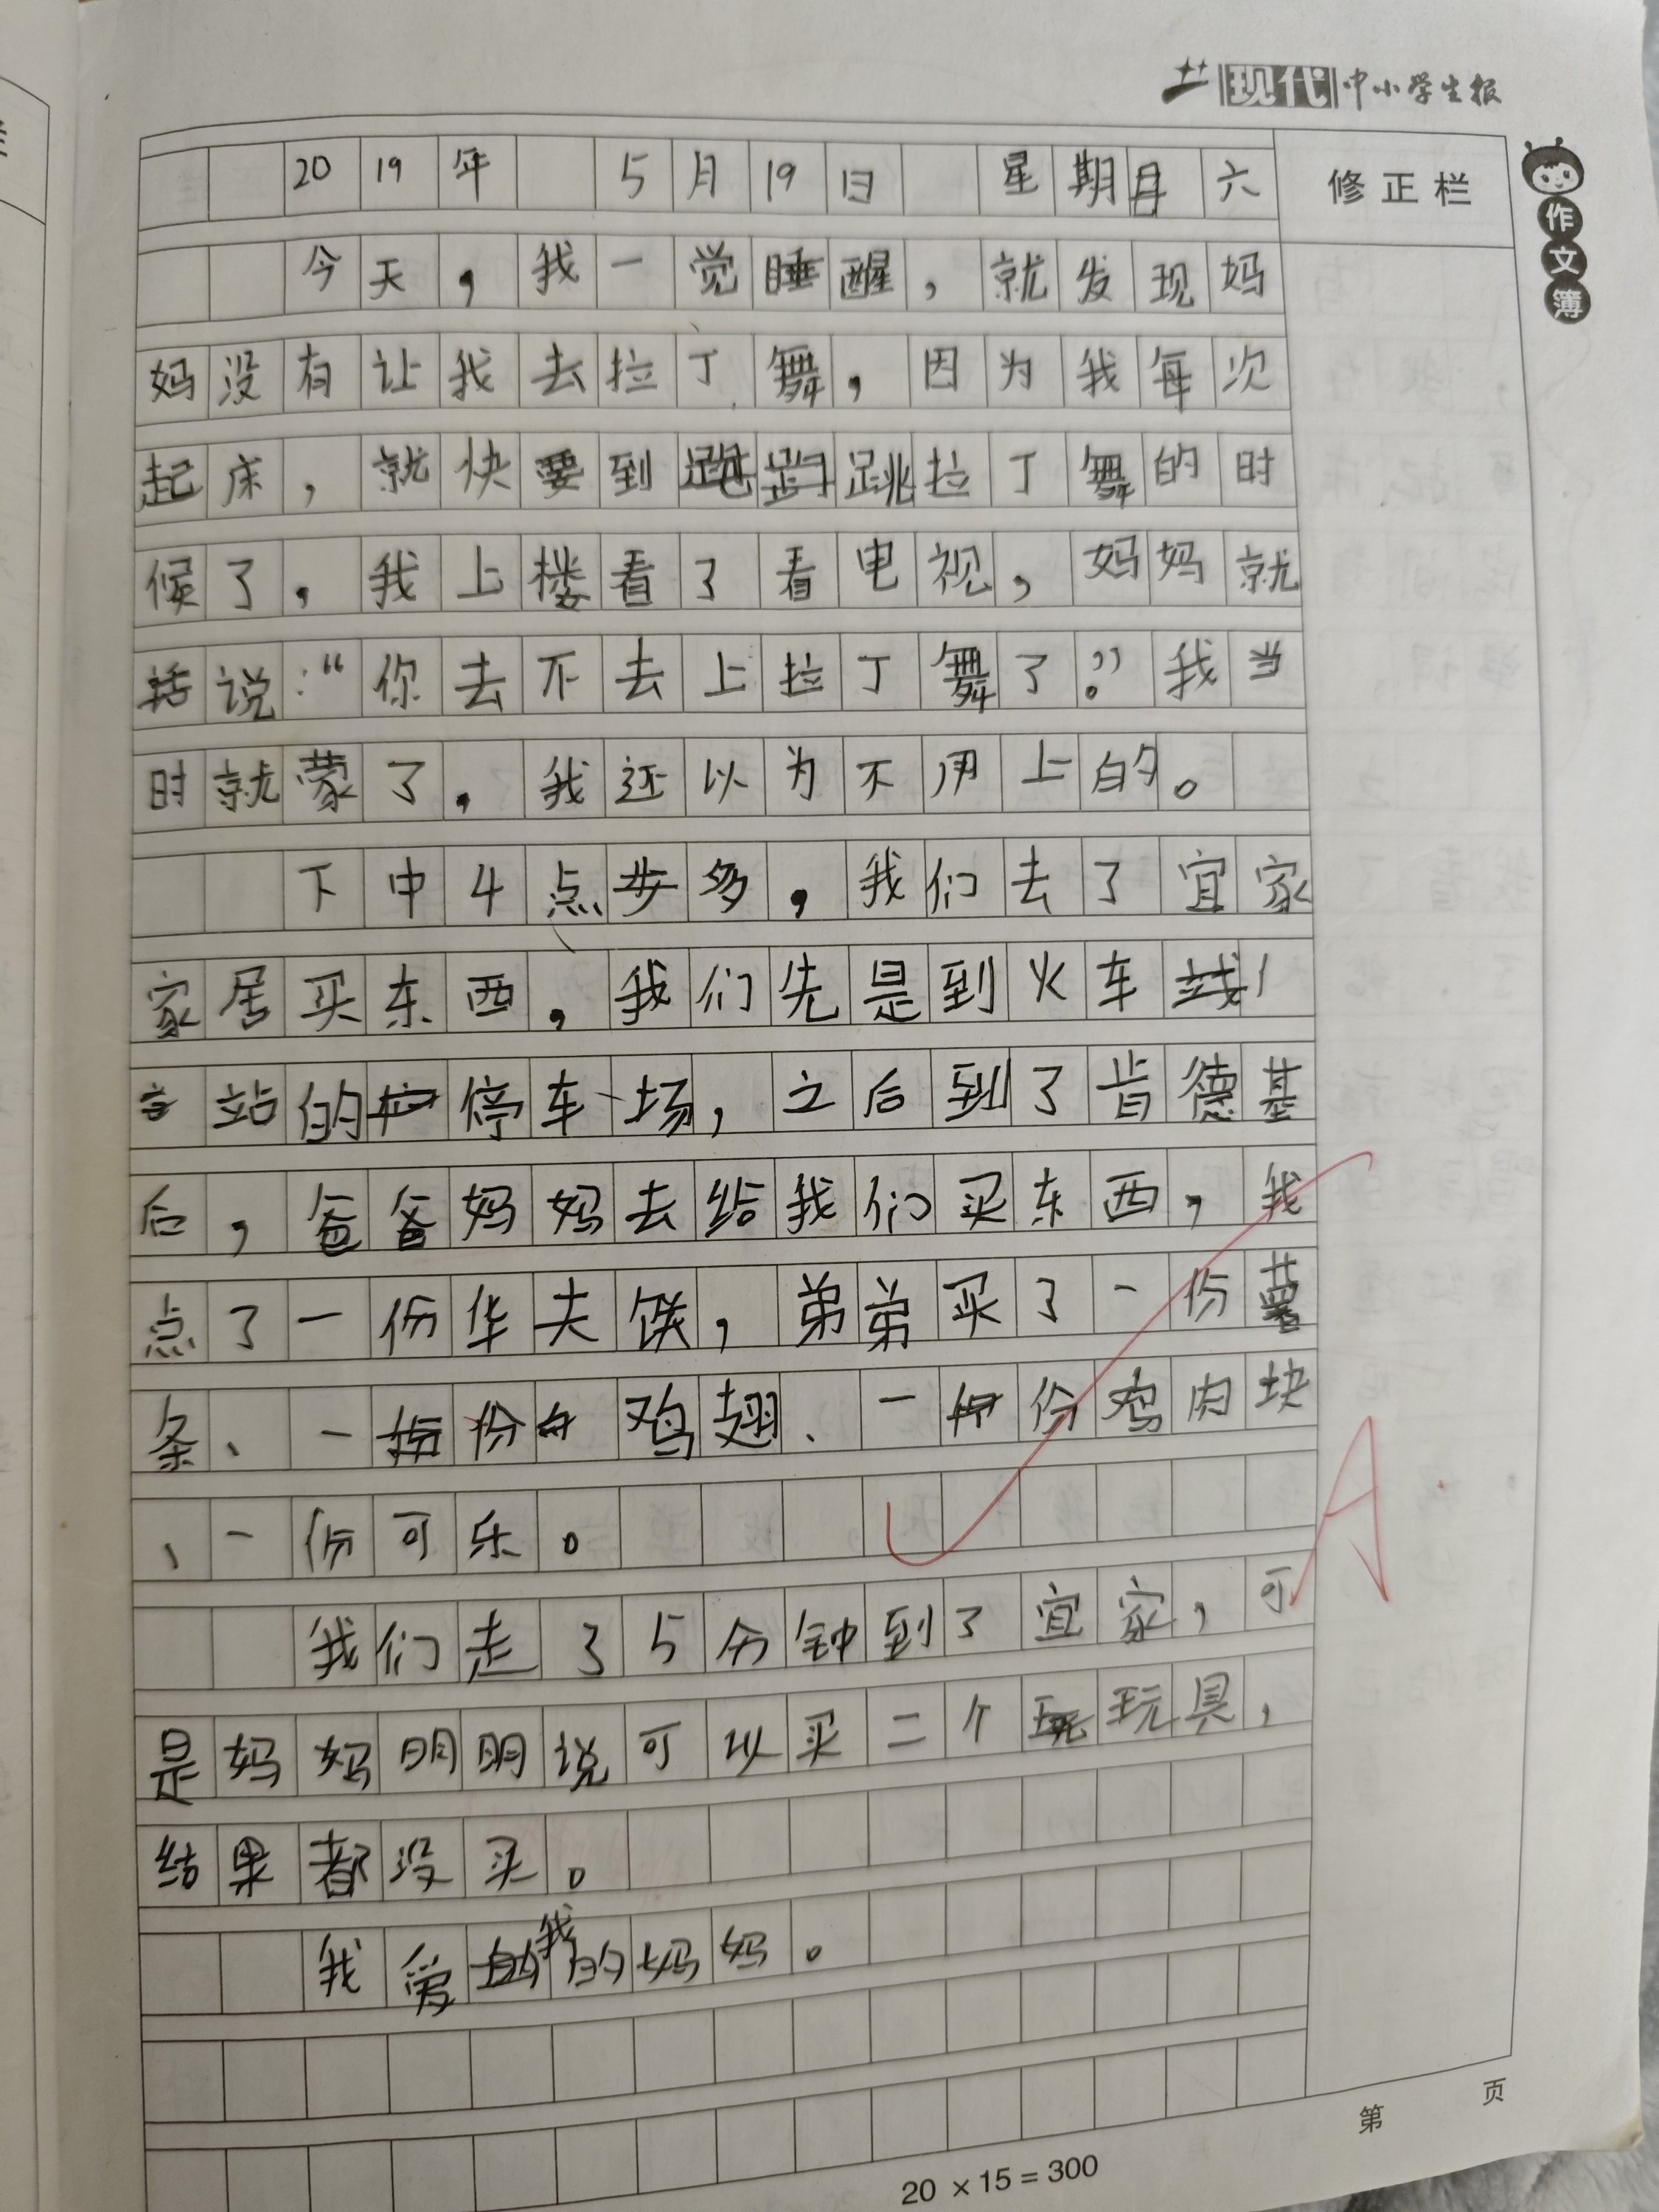 现代中小学生报
作文簿
修正栏
2019年 5月19日 星期六
今天，我一觉睡醒，就发现妈
妈没有让我去拉丁舞，因为我每次
起床，就快要到跳拉丁舞的时
候了，我上楼看了看电视，妈妈就
说：“你去不去上拉丁舞了？”我当
时就蒙了，我还以为不用上的。
下中4点步多，我们去了宜家
家居买东西，我们先是到火车
站的停车场，之后到了肯德基
后，爸爸妈妈去给我们买东西，我
点了一份华夫饼，弟弟买了一份薯
条、一份鸡翅、一份鸡肉块
、一份可乐。
我们走了5分钟到了宜家，可
是妈妈明明说可以买二个玩具，
结果都没买。
我爱我的妈妈。
A
第 页
20×15=300